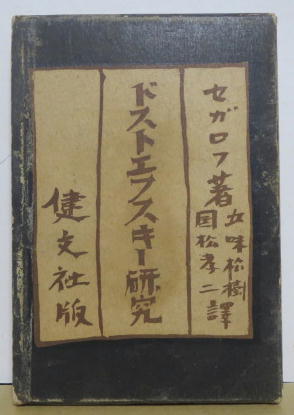 セガロフ著
五味松樹
国松孝二 譯
ドストエフスキー研究
健文社版